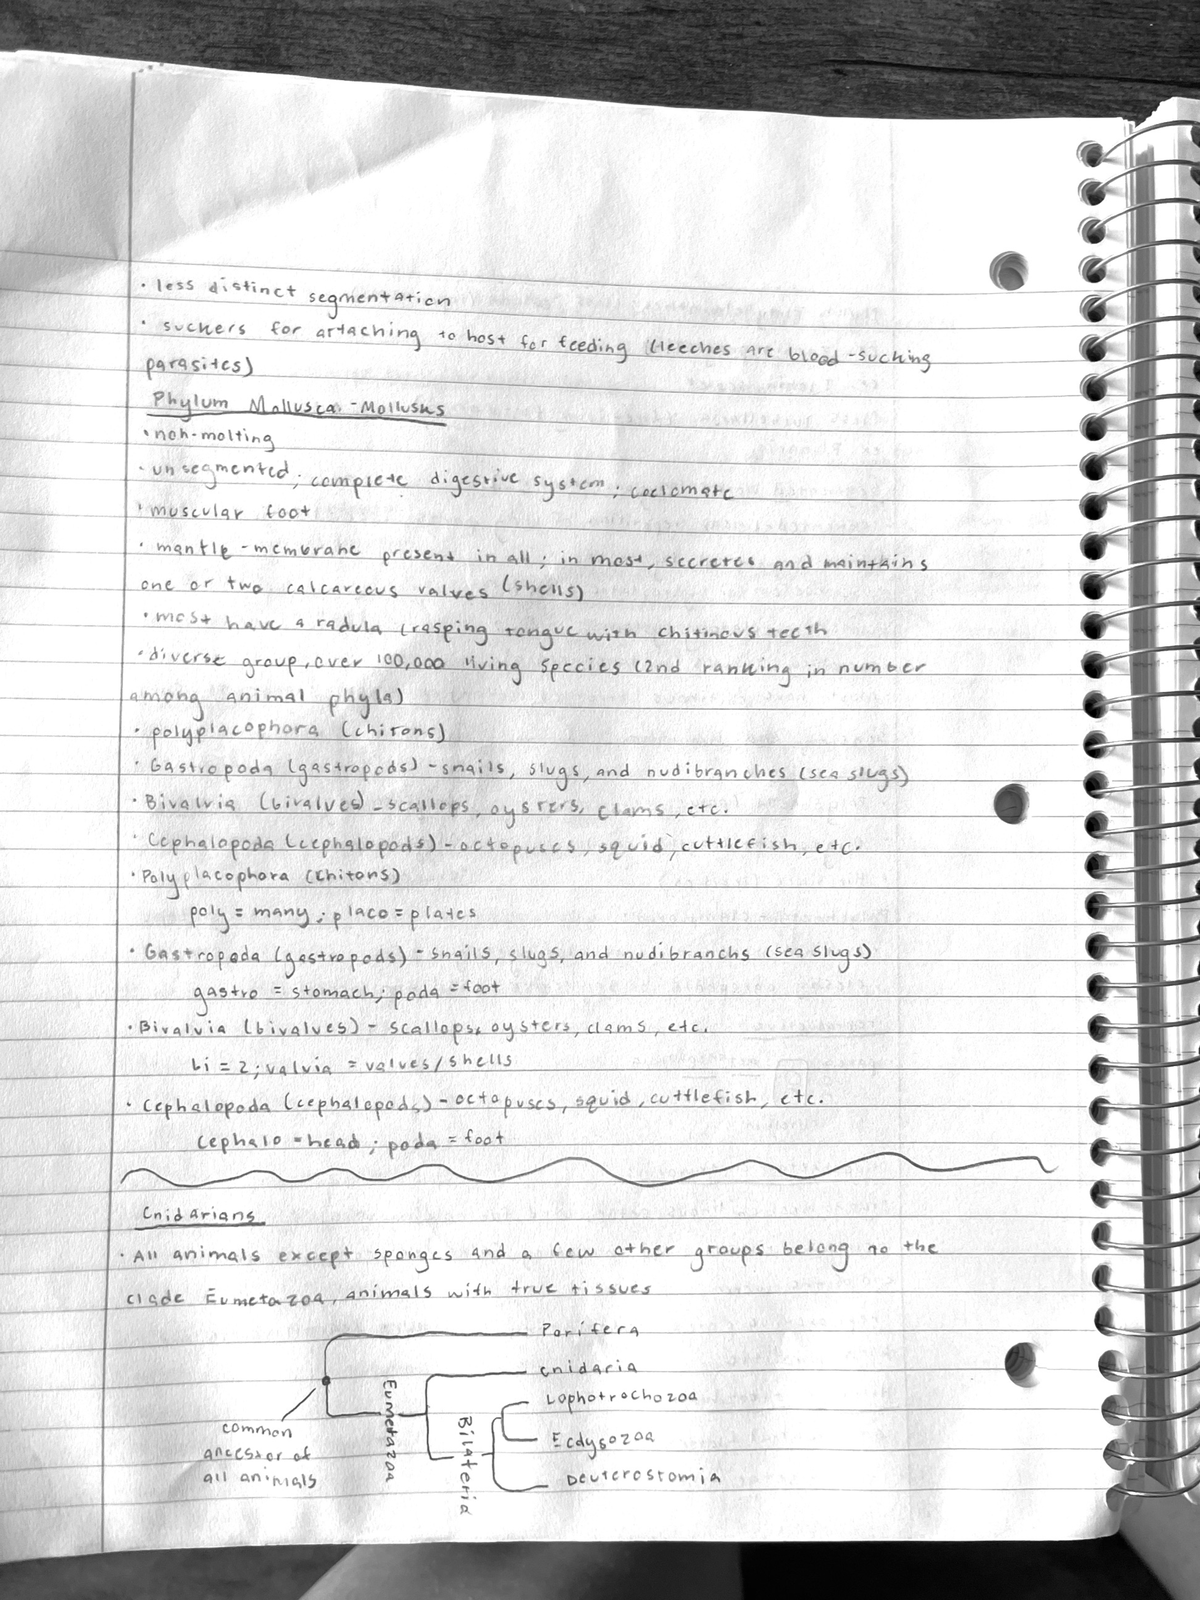 · less distinct segmentation
· suckers for attaching to host for feeding (leeches are blood-sucking
parasites)
Phylum Mollusca - Mollusks
· non-molting
· unsegmented; complete digestive system; coelomate
· muscular foot
· mantle - membrane present in all; in most, secretes and maintains
one or two calcareous valves (shells)
· most have a radula (rasping tongue with chitinous teeth
· diverse group, over 100,000 living species (2nd ranking in number
among animal phyla)
· polyplacophora (chitons)
· Gastropoda (gastropods) - snails, slugs, and nudibranches (sea slugs)
· Bivalvia (bivalves) - scallops, oysters, clams, etc.
· Cephalopoda (cephalopods) - octopuses, squid, cuttlefish, etc.
· Polyplacophora (chitons)
poly = many; placo = plates
· Gastropoda (gastropods) - snails, slugs, and nudibranchs (sea slugs)
gastro = stomach; poda = foot
· Bivalvia (bivalves) - scallops, oysters, clams, etc.
bi = 2; valvia = valves/shells
· Cephalopoda (cephalopods) - octopuses, squid, cuttlefish, etc.
cephalo = head; poda = foot
Cnidarians
· All animals except sponges and a few other groups belong to the
clade Eumetazoa, animals with true tissues
Porifera
Cnidaria
Eumetazoa
Lophotrochozoa
Bilateria
Ecdysozoa
Deuterostomia
common
ancestor of
all animals